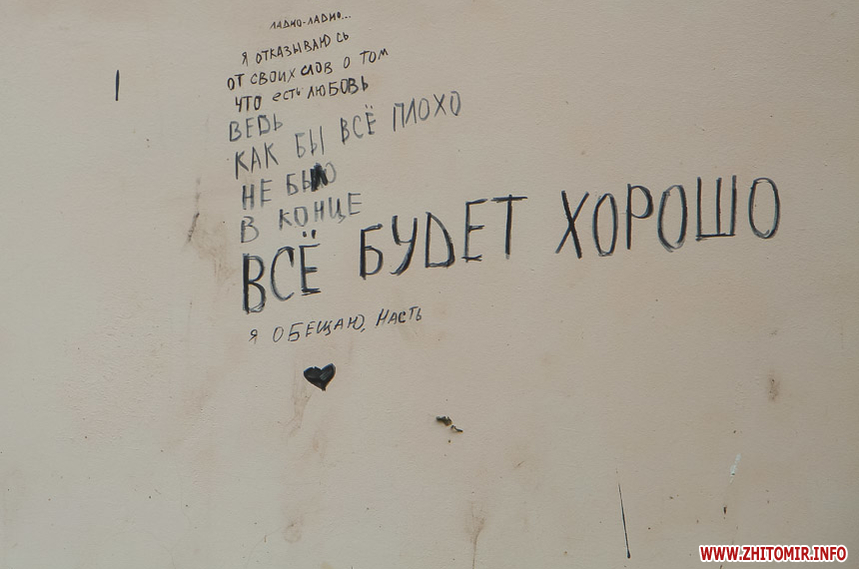 ЛАДНО-ЛАДНО...
Я ОТКАЗЫВАЮСЬ
ОТ СВОИХ СЛОВ О ТОМ
ЧТО ЕСТЬ ЛЮБОВЬ
ВЕДЬ
КАК БЫ ВСЁ ПЛОХО
НЕ БЫЛО
В КОНЦЕ
ВСЁ БУДЕТ ХОРОШО
Я ОБЕЩАЮ, НАСТЬ
WWW.ZHITOMIR.INFO